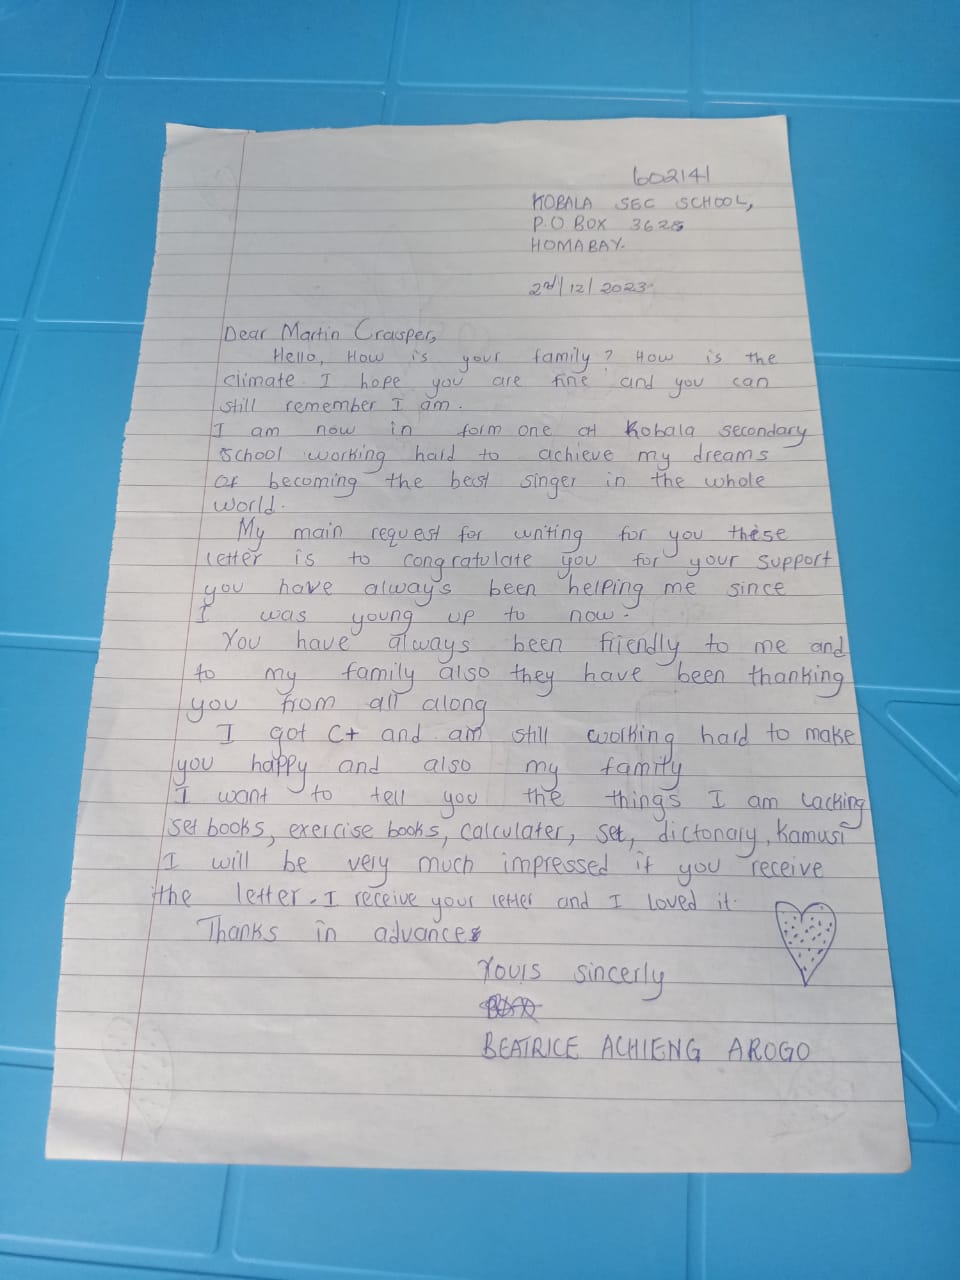 602141
KOBALA SEC SCHOOL,
P.O BOX 3625
HOMABAY.
2nd/12/2023
Dear Martin Crausper,
Hello, How is your family? How is the
climate. I hope you are fine and you can
still remember I am.
I am now in form one at Kobala secondary
school working hard to achieve my dreams
of becoming the best singer in the whole
world.
My main request for writing for you these
letter is to congratulate you for your support
you have always been helping me since
I was young up to now.
You have always been friendly to me and
to my family also they have been thanking
you from all along
I got C+ and am still working hard to make
you happy and also my family
I want to tell you the things I am lacking
set books, exercise books, calculater, set, dictonary, Kamusi
I will be very much impressed if you receive
the letter. I receive your letter and I loved it.
Thanks in advance
Yours sincerly
BEATRICE ACHIENG AROGO